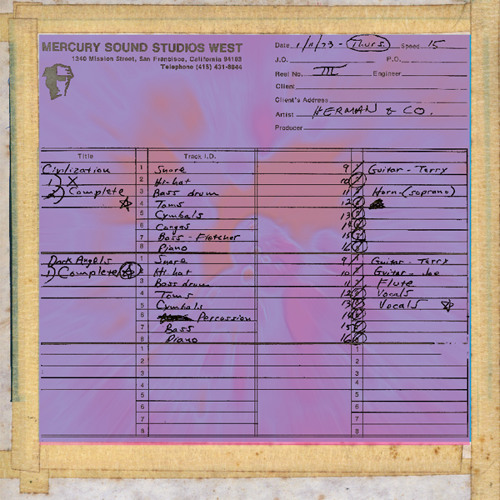 MERCURY SOUND STUDIOS WEST
1340 Mission Street, San Francisco, California 94103
Telephone (415) 431-0864
Date 1/11/73 - Thurs. Speed 15
J.O. P.O.
Reel No. III Engineer
Client
Client's Address
Artist HERMAN & CO.
Producer
Title Track I.D.
Civilization 1 Snare 9 Guitar - Terry
1) X 2 Hi-hat 10
2) Complete 3 Bass drum 11 Horn - (soprano)
4 Toms 12
5 Cymbals 13
6 Congas 14
7 Bass - Fletcher 15
8 Piano 16
Dark Angels 1 Snare 9 Guitar - Terry
1) Complete 2 Hi hat 10 Guitar - Joe
3 Bass drum 11 Flute
4 Toms 12 Vocals
5 Cymbals 13 Vocals
6 Percession 14
7 Bass 15
8 Piano 16
1 1
2 2
3 3
4 4
5 5
6 6
7 7
8 8